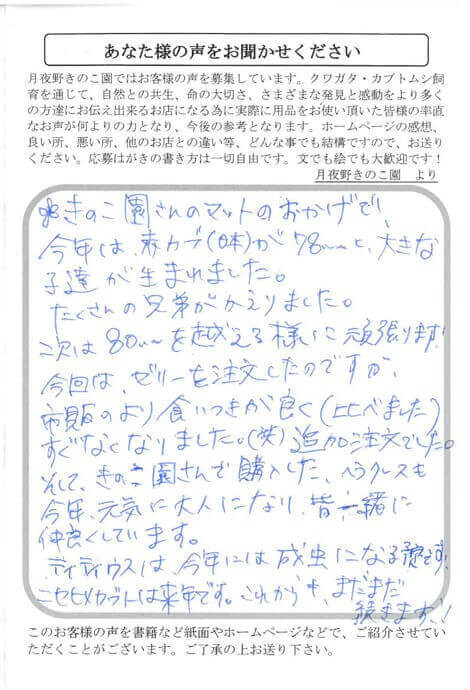 あなた様の声をお聞かせください
月夜野きのこ園ではお客様の声を募集しています。クワガタ・カブトムシ飼
育を通じて、自然との共生、命の大切さ、さまざまな発見と感動をより多く
の方達にお伝え出来るお店になる為に実際に用品をお使い頂いた皆様の率直
なお声が何よりの力となり、今後の参考となります。ホームページの感想、
良い所、悪い所、他のお店との違い等、どんな事でも結構ですので、お送り
ください。応募はがきの書き方は一切自由です。文でも絵でも大歓迎です！
月夜野きのこ園 より
きのこ園さんのマットのおかげで、
今年は、赤カブ(日本)が78mmと、大きな
子達が生まれました。
たくさんの兄弟がかえりました。
次は80mmを越える様に頑張ります
今回は、ゼリーを注文したのですが、
市販のより食いつきが良く(比べました)
すぐなくなりました。(笑)追加注文でした。
そして、きのこ園さんで購入した、ヘラクレスも
今年、元気に大人になり、皆一緒に
仲良くしています。
ティティウスは、今年には成虫になる予定です
ニセヒメカブトは来年です。これからも、まだまだ
続きます、！
このお客様の声を書籍など紙面やホームページなどで、ご紹介させてい
ただくことがございます。ご了承の上お送り下さい。